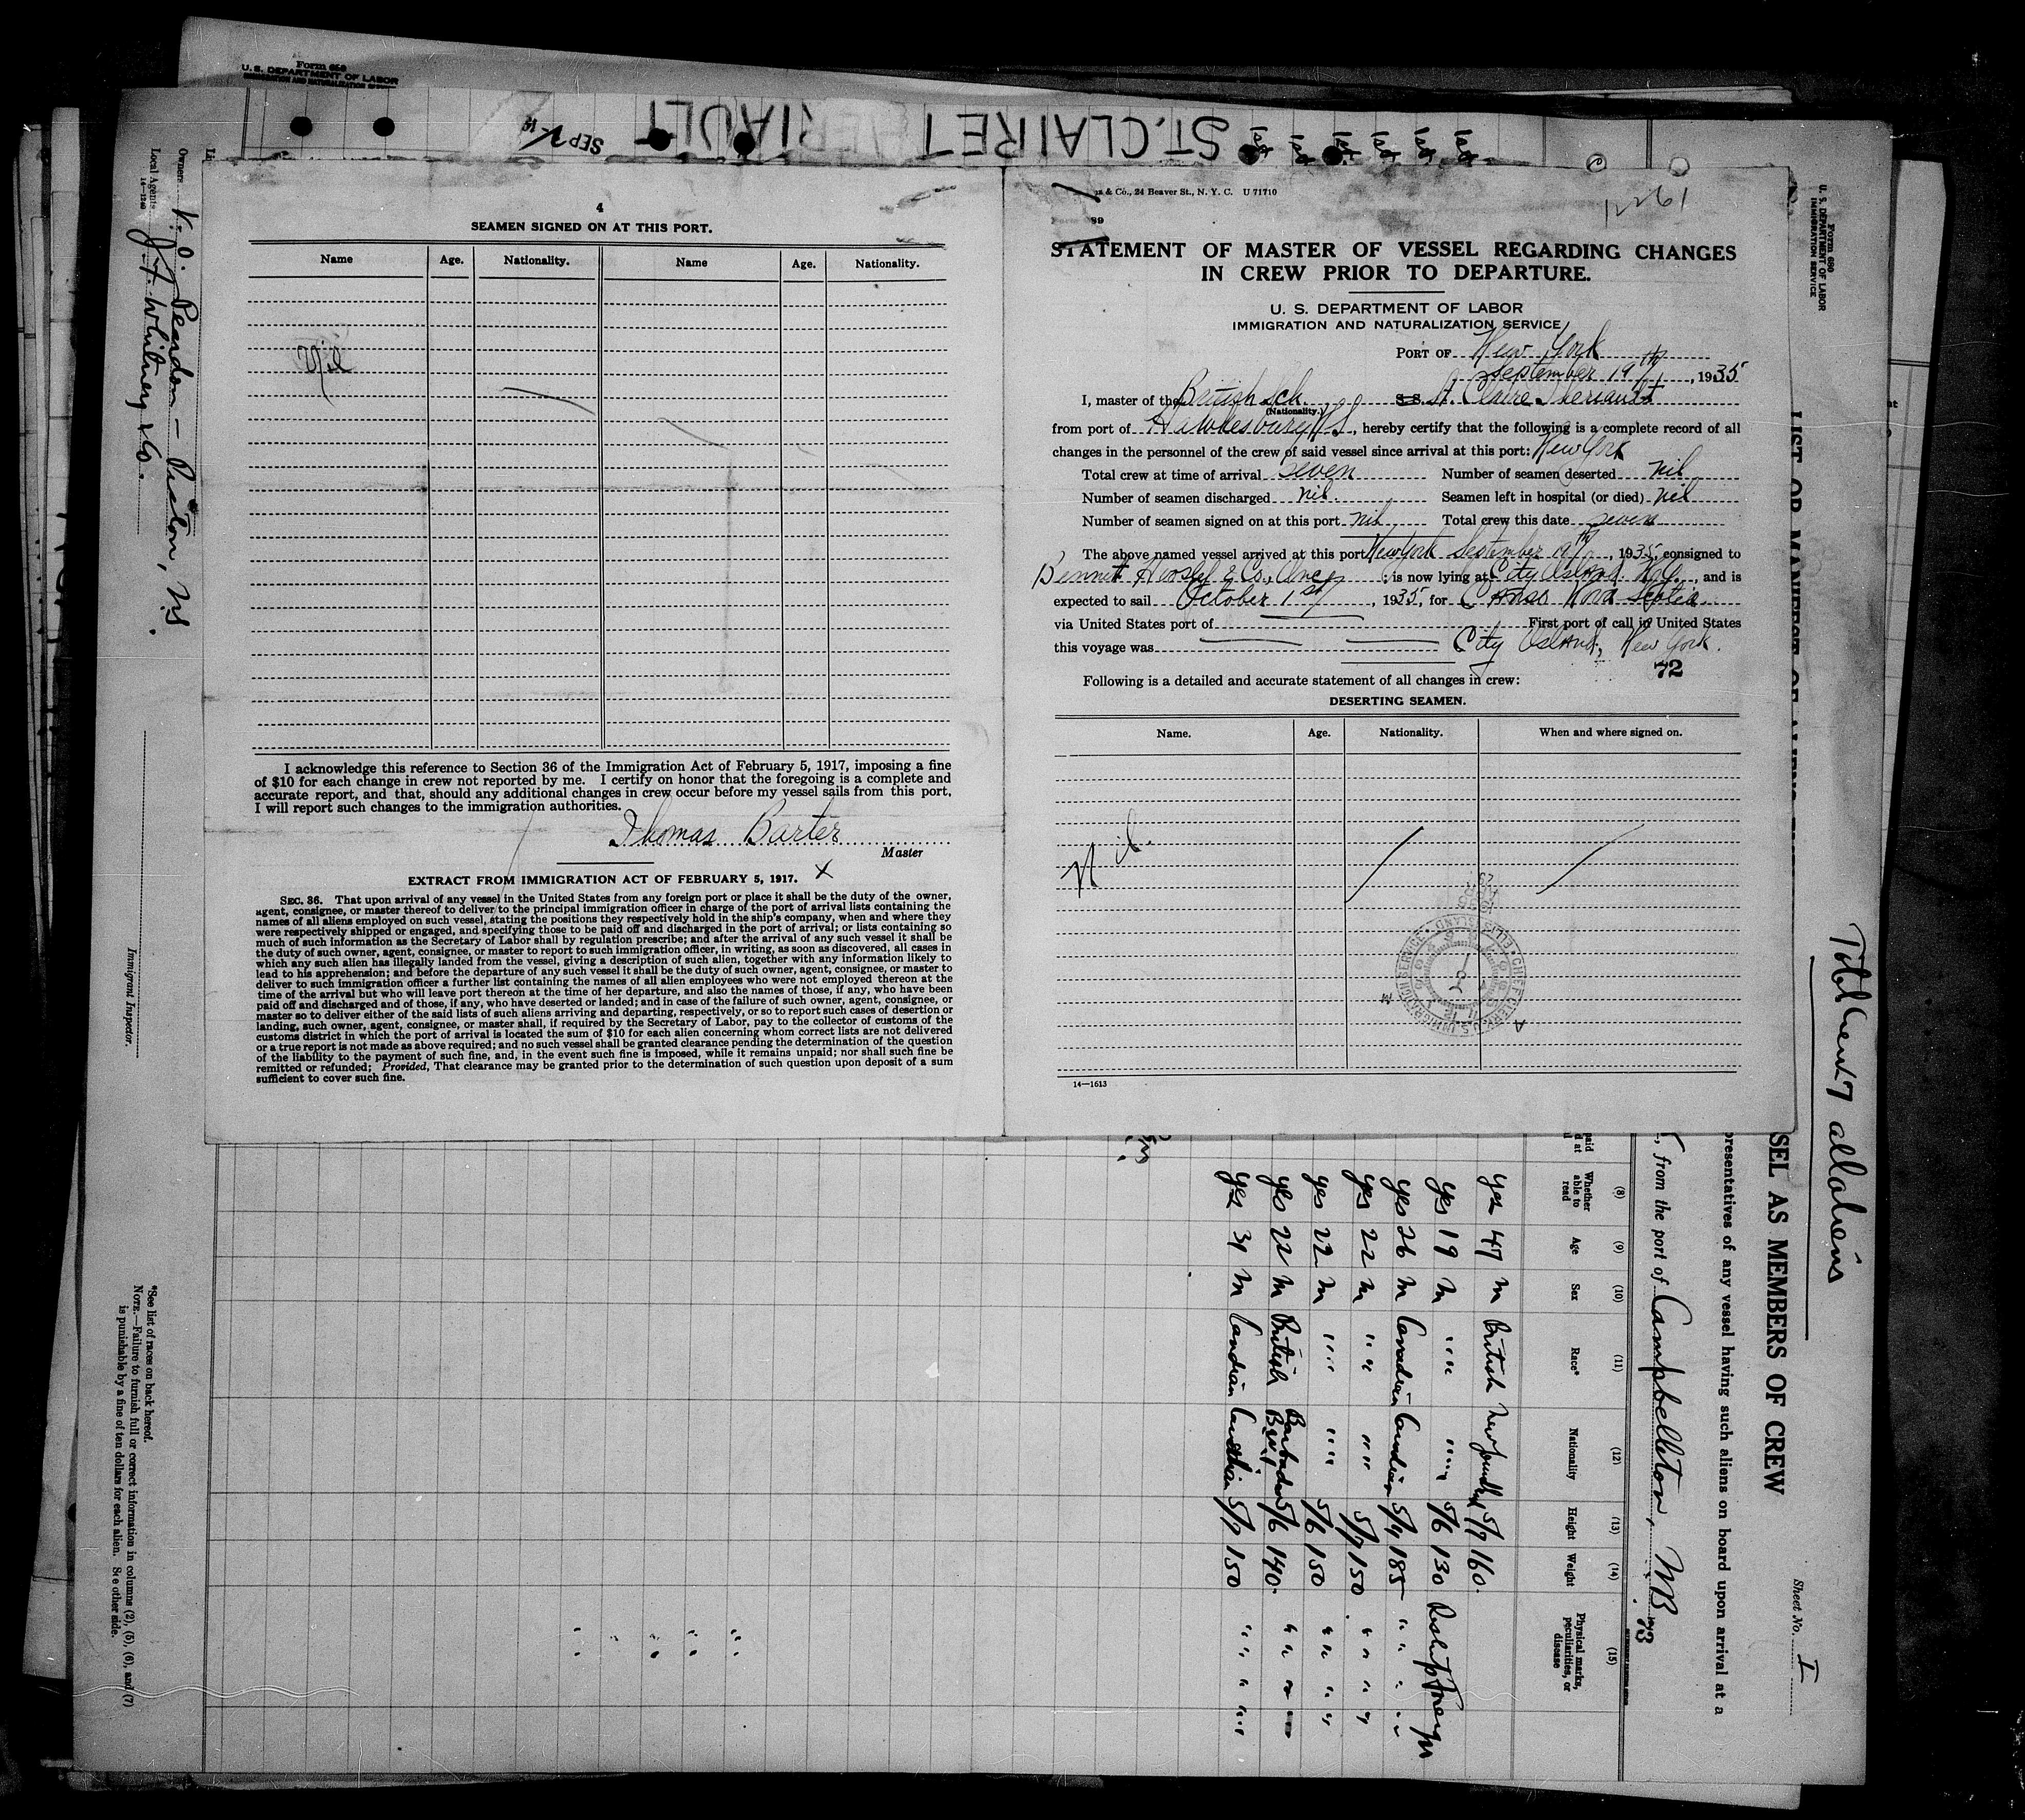 Form 689
U. S. DEPARTMENT OF LABOR
IMMIGRATION AND NATURALIZATION SERVICE
ST.CLAIRE THERIAULT
SEP
1st 1st 1st 1st 1st 1st
Owners K. O. Reardon — Pictou, N.S.
Local Agents J. F. Whitney & Co.
14—1240
Immigrant Inspector.
4
SEAMEN SIGNED ON AT THIS PORT.
Name Age. Nationality. Name Age. Nationality.
Nil
I acknowledge this reference to Section 36 of the Immigration Act of February 5, 1917, imposing a fine
of $10 for each change in crew not reported by me. I certify on honor that the foregoing is a complete and
accurate report, and that, should any additional changes in crew occur before my vessel sails from this port,
I will report such changes to the immigration authorities.
Thomas Barter
Master
X
EXTRACT FROM IMMIGRATION ACT OF FEBRUARY 5, 1917.
SEC. 36. That upon arrival of any vessel in the United States from any foreign port or place it shall be the duty of the owner,
agent, consignee, or master thereof to deliver to the principal immigration officer in charge of the port of arrival lists containing the
names of all aliens employed on such vessel, stating the positions they respectively hold in the ship's company, when and where they
were respectively shipped or engaged, and specifying those to be paid off and discharged in the port of arrival; or lists containing so
much of such information as the Secretary of Labor shall by regulation prescribe; and after the arrival of any such vessel it shall be
the duty of such owner, agent, consignee, or master to report to such immigration officer, in writing, as soon as discovered, all cases in
which any such alien has illegally landed from the vessel, giving a description of such alien, together with any information likely to
lead to his apprehension; and before the departure of any such vessel it shall be the duty of such owner, agent, consignee, or master to
deliver to such immigration officer a further list containing the names of all alien employees who were not employed thereon at the
time of the arrival but who will leave port thereon at the time of her departure, and also the names of those, if any, who have been
paid off and discharged and of those, if any, who have deserted or landed; and in case of the failure of such owner, agent, consignee, or
master so to deliver either of the said lists of such aliens arriving and departing, respectively, or so to report such cases of desertion or
landing, such owner, agent, consignee, or master shall, if required by the Secretary of Labor, pay to the collector of customs of the
customs district in which the port of arrival is located the sum of $10 for each alien concerning whom correct lists are not delivered
or a true report is not made as above required; and no such vessel shall be granted clearance pending the determination of the question
of the liability to the payment of such fine, and, in the event such fine is imposed, while it remains unpaid; nor shall such fine be
remitted or refunded; Provided, That clearance may be granted prior to the determination of such question upon deposit of a sum
sufficient to cover such fine.
& Co., 24 Beaver St., N. Y. C. U 71710
89
STATEMENT OF MASTER OF VESSEL REGARDING CHANGES
IN CREW PRIOR TO DEPARTURE.
U. S. DEPARTMENT OF LABOR
IMMIGRATION AND NATURALIZATION SERVICE
PORT OF New York
September 19th, 1935
I, master of the British Sch. S.S. St Claire Theriault
(Nationality.)
from port of Hawkesbury N S, hereby certify that the following is a complete record of all
changes in the personnel of the crew of said vessel since arrival at this port: New York
Total crew at time of arrival seven Number of seamen deserted nil
Number of seamen discharged nil. Seamen left in hospital (or died) nil
Number of seamen signed on at this port nil Total crew this date seven
The above named vessel arrived at this port New York September 19th, 1935, consigned to
Bennett Co., Inc; is now lying at City Island. N.Y., and is
expected to sail October 1st, 1935, for Canso Nova Scotia.
via United States port of First port of call in United States
this voyage was City Island, New York.
72
Following is a detailed and accurate statement of all changes in crew:
DESERTING SEAMEN.
Name. Age. Nationality. When and where signed on.
Nil.
14—1613
Form 680
U. S. DEPARTMENT OF LABOR
IMMIGRATION SERVICE
Sheet No. I
Total Crew 7 all aliens
SEL AS MEMBERS OF CREW
presentatives of any vessel having such aliens on board upon arrival at a
, from the port of Campbellton, NB
73
(8) (9) (10) (11) (12) (13) (14) (15)
Whether able to read Age Sex Race* Nationality Height Weight Physical marks, peculiarities, or disease
yes 47 M British Newfoundland 5/9 160
yes 19 M " " " " 5/6 130
yes 26 M Canadian Canadian 5/11 185 " "
yes 22 M " " " " 5/7 150 " "
yes 22 M " " " " 5/6 150 " "
yes 22 M British Barbados Brit 5/6 140 " "
yes 31 M Canadian Canadian 5/7 150 " "
*See list of races on back hereof.
NOTE.—Failure to furnish full or correct information in columns (2), (5), (6), and (7)
is punishable by a fine of ten dollars for each alien. See other side.